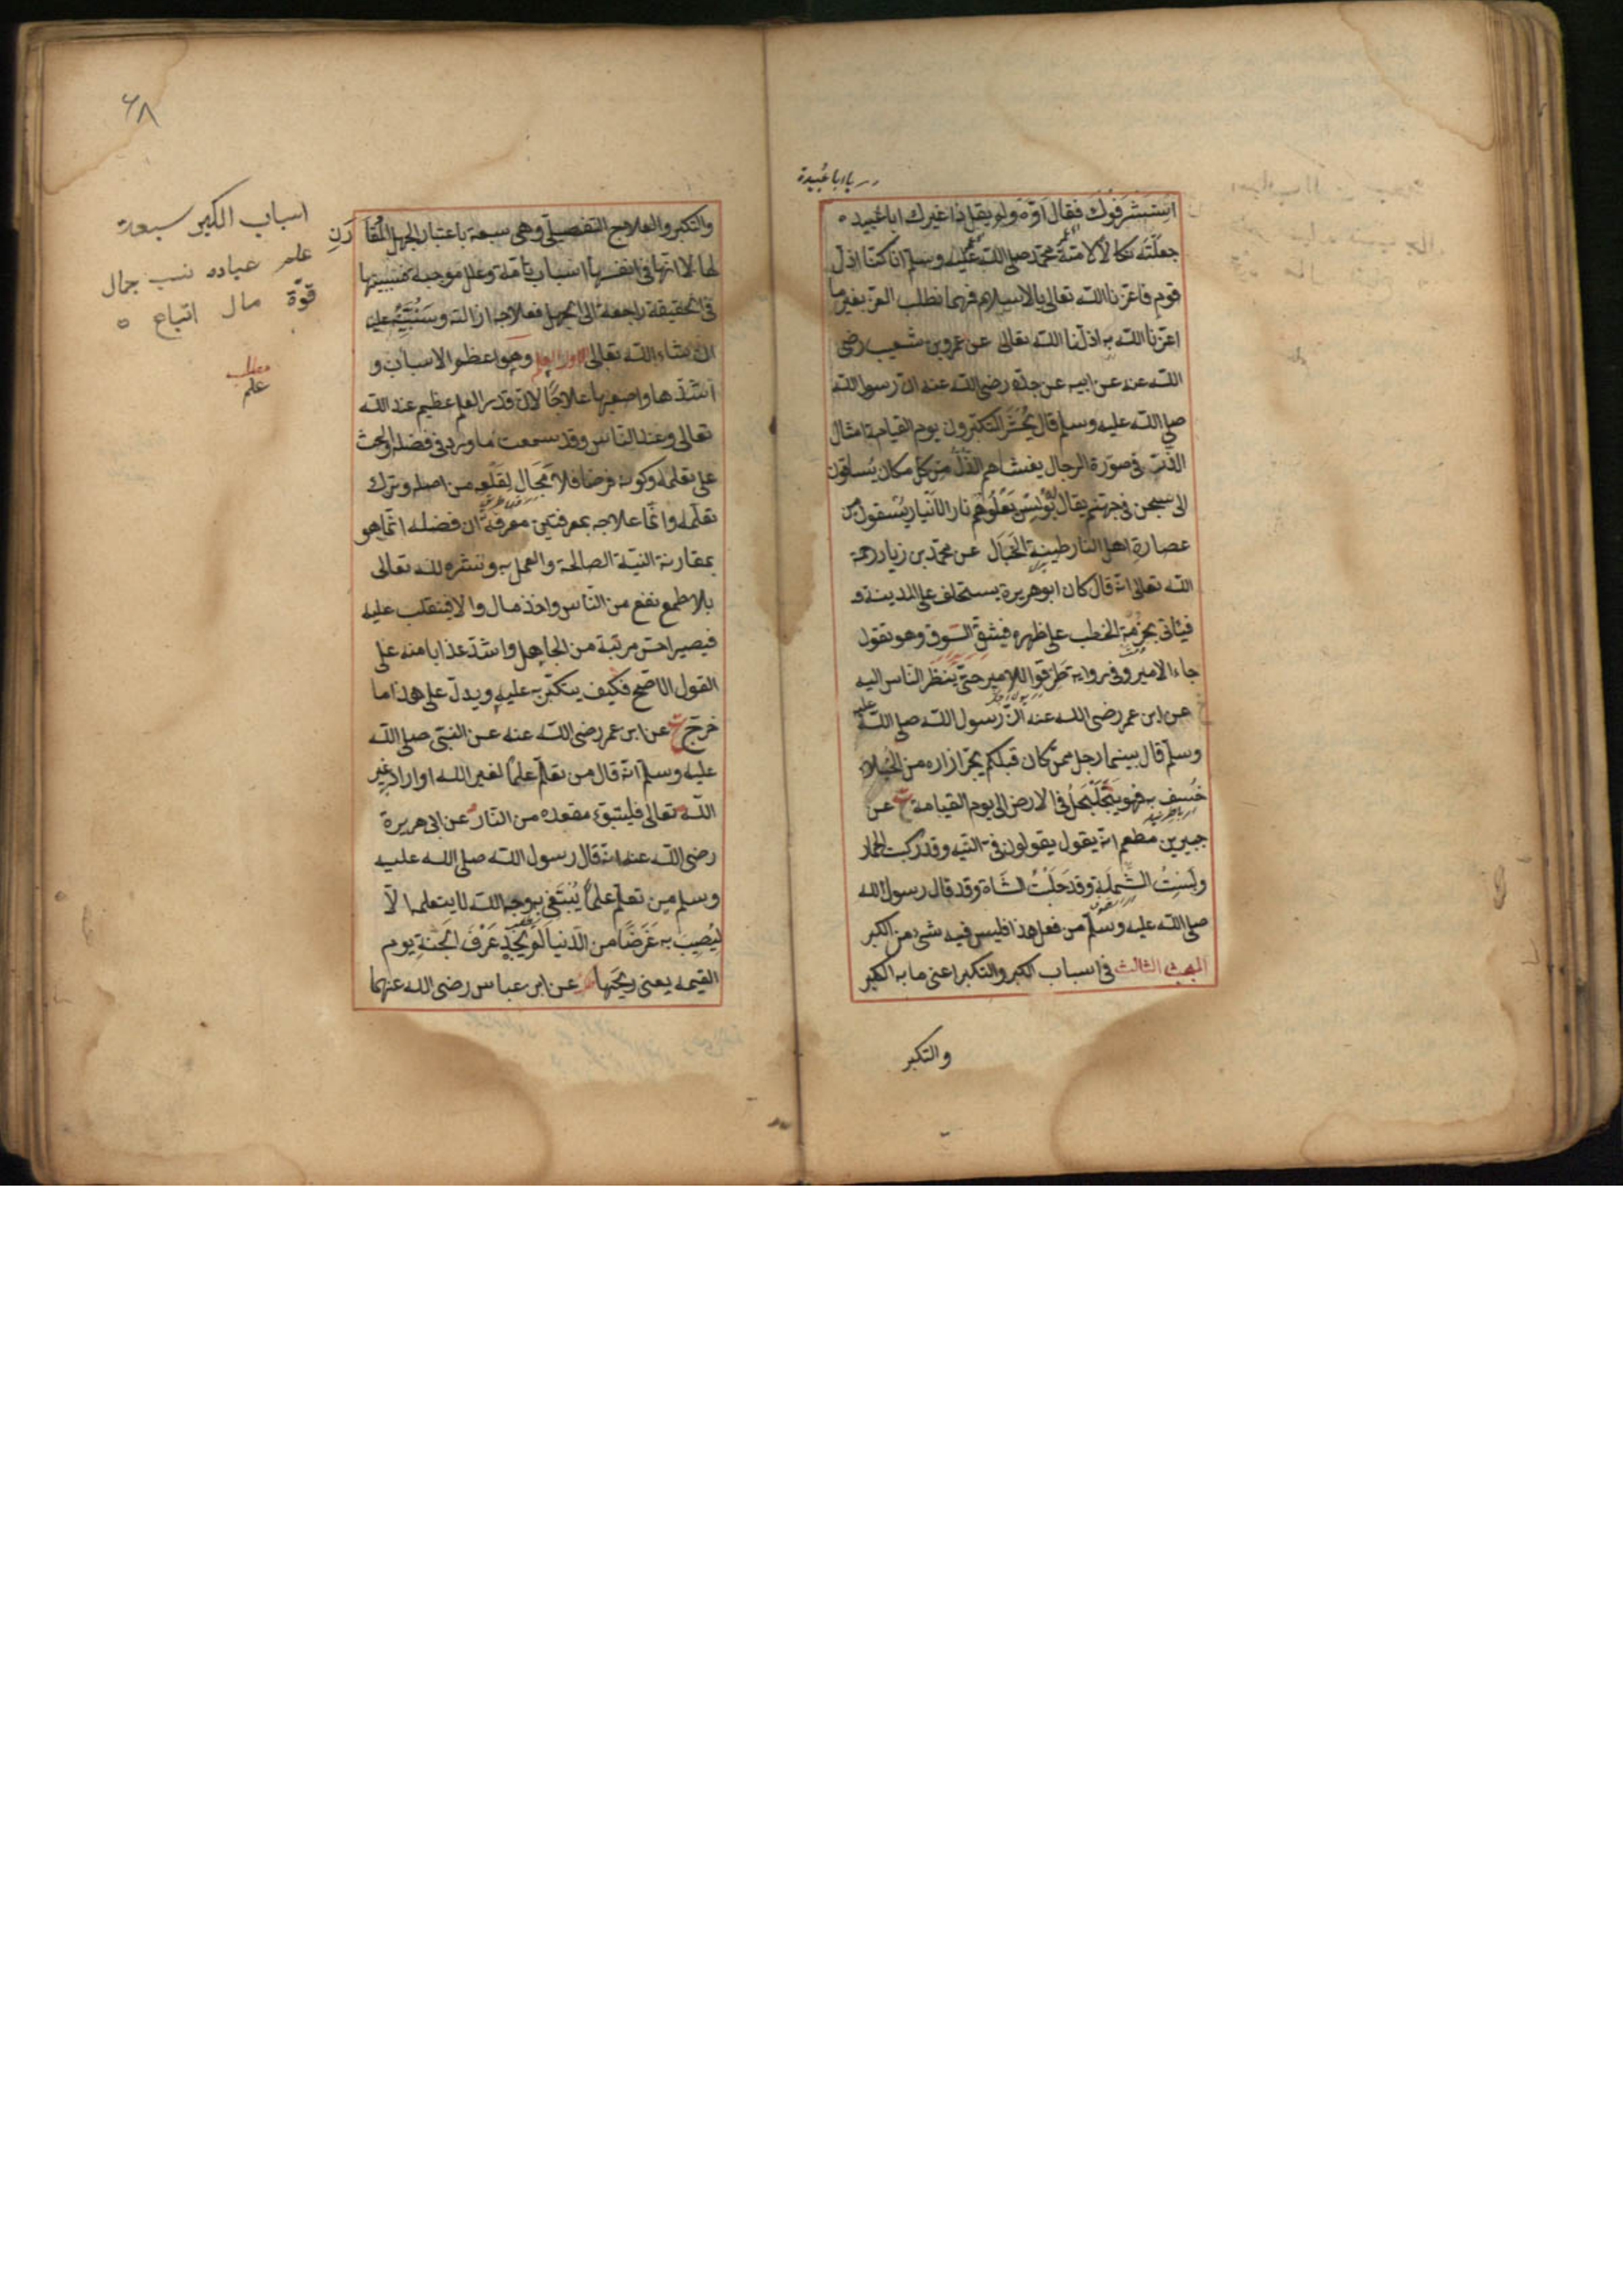 يا ابا عبيدة
استشرفوك فقال اوّه ولو يقل ذا غيرك ابا عُبيده
جعلته نكالا لامة محمّد صلى الله عليه وسلم انا كنّا اذل
قوم فاعزنا الله تعالى بالاسلام فهما نطلب العز بغير ما
اعزنا الله به اذلنا الله تعالى عن عمرو بن شعيب رضى
الله عنه عن ابيه عن جدّه رضى الله عنه ان رسول الله
صلى الله عليه وسلم قال يُحْشَرُ المتكبّرون يوم القيامة امثال
الذّر فى صورة الرجال يغشاهم الذُلّ من كلّ مكان يُساقون
الى سجن فى جهنم يقال له بُولَس تَعْلُوهُمْ نار الأنيار يُسْقَون من
عصارة اهل النار طينة الخَبَال عن محمّد بن زياد رحمة
الله تعالى انه قال كان ابو هريرة يستخلف على المدينة و
فيأتى بحزمة الحطب على ظهره فيشق السّوق وهو يقول
جاء الامير وفى رواية طَرِّقوا للامير حتّى ينظر الناس اليه
عن ابن عمر رضى الله عنه انّ رسول الله صلى الله عليه
وسلم قال بينما رجل ممّن كان قبلكم يجرّ ازاره من الخيلاء
خُسِف به فهو يَتَجَلْجَلُ فى الارض الى يوم القيامة عن
جبير بن مطعم انه يقول يقولون فى التيه وقد ركبت الحمار
ولبستُ الشملة وقد حَلَبْتُ الشاة وقد قال رسول الله
صلى الله عليه وسلم من فعل هذا فليس فيه شىء من الكبر
المبحث الثالث فى اسباب الكبر والتكبر اعنى ما به الكبر
والتكبر
٦٨
والتكبر والعلاج التفصيلّى وهى سبعة باعتبار الجهل المُقَارَنِ
لها لا انّها فى انفسها اسباب تامّة وعلل موجبة فسببيتها
فى الحقيقة راجعة الى الجهل فعلاجه ازالته وسننبّه عليه
ان شاء الله تعالى الاول العلم وهو اعظم الاسباب و
اشدّها واصعبها علاجًا لان قدر العلم عظيم عند الله
تعالى وعند الناس وقد سمعت ما ورد فى فضله والحث
على تعلمه وكونه فرضا فلا مَجَال لقلعه من اصله وترك
تعلّمه وانّما علاجه بمعرفتين معرفة انّ فضله انّما هو
بمقارنة النيّة الصالحة والعمل به ونشره لله تعالى
بلا طمع نفع من النّاس واخذ مال والا فينقلب عليه
فيصير اخسّ مرتبة من الجاهل واشدّ عذابا منه على
القول الاصّح فكيف يتكبّر به عليه ويدلّ على هذا ما
خرّج عن ابن عمر رضى الله عنه عن النبّى صلى الله
عليه وسلم انّه قال من تعلّم علمًا لغير الله او اراد به غير
الله تعالى فليتبوّء مقعده من النّار عن ابى هريرة
رضى الله عنه انّه قال رسول الله صلى الله عليه
وسلم من تعلّم علمًا يُبْتَغى به وجه الله لا يتعلمه الّا
ليُصيبَ به عَرَضًا من الدّنيا لم يجد عَرْفَ الجنة يوم
القيمة يعنى ريحَها عن ابن عباس رضى الله عنهما
اسباب الكبر سبعة
علم عباده نسب جمال
قوّة مال اتباع ٥
مطلب
علم